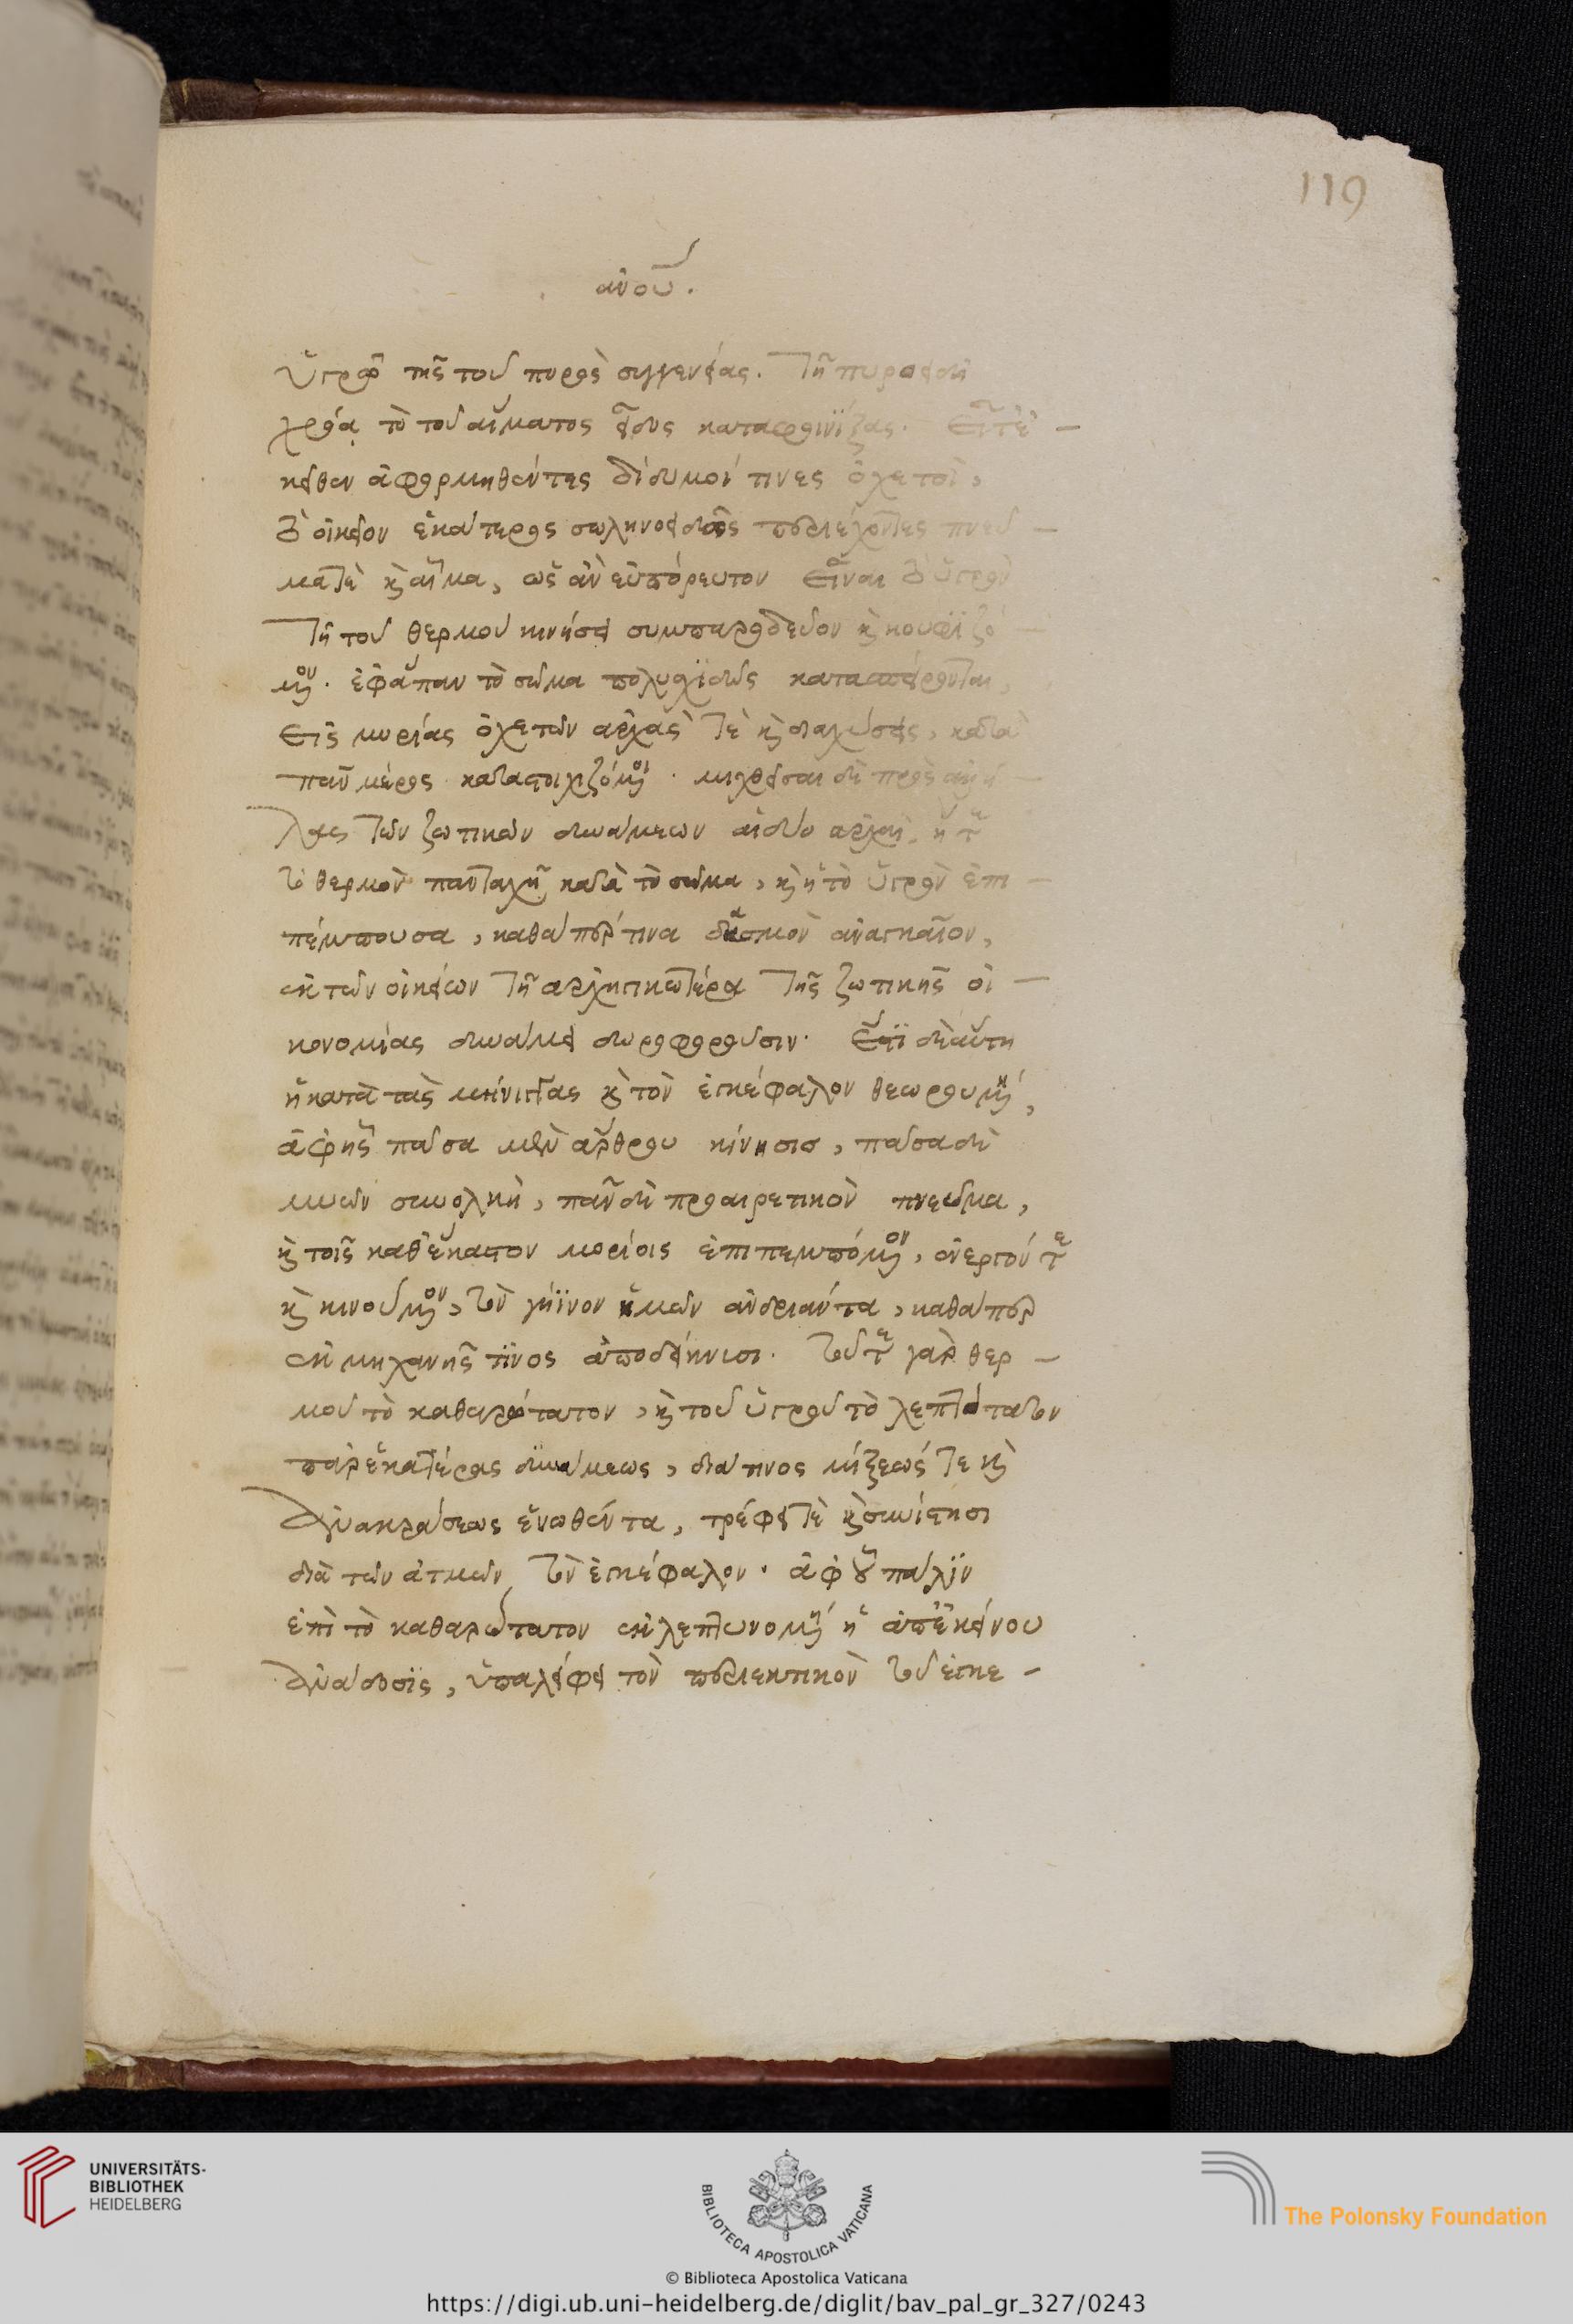 119
ἀνου.
ὑγρῷ τῆς τοῦ πυρὸς συγγενείας. τῇ πυροειδεῖ
χρόᾳ τὸ τοῦ αἵματος εἶδος καταφοινίξας. εἶτ' ἐ-
κεῖθεν ἀφορμηθέντες δίδυμοί τινες ὀχετοί,
τὸ οἰκεῖον ἑκάτερος σωληνοειδῶς περιέχοντες πνεῦ-
μά τε καὶ αἷμα, ὡς ἂν εὐπόρευτον εἶναι τὸ ὑγρὸν
τῇ τοῦ θερμοῦ κινήσει συμπαροδεῦον καὶ κουφιζό-
μενον. ἐφ' ἅπαν τὸ σῶμα πολυσχιδῶς κατασπείρονται,
εἰς μυρίας ὀχετῶν ἀρχάς τε καὶ διαχύσεις, κατὰ
πᾶν μέρος καταστοιχιζόμενοι. μιχθεῖσαι δὲ πρὸς ἀλλή-
λας τῶν ζωτικῶν δυνάμεων αἱ δύο ἀρχαί, ἥ τε
τὸ θερμὸν πανταχῆ κατὰ τὸ σῶμα, καὶ ἡ τὸ ὑγρὸν ἐπι-
πέμπουσα, καθάπερ τινὰ δασμὸν ἀναγκαῖον,
ἐκ τῶν οἰκείων τῇ ἀρχηγικωτέρᾳ τῆς ζωτικῆς οἰ-
κονομίας δυνάμει δωροφοροῦσιν. ἔστι δὲ αὕτη
ἡ κατὰ τὰς μήνιγγας καὶ τὸν ἐγκέφαλον θεωρουμένη,
ἀφ' ἧς πᾶσα μὲν ἄρθρου κίνησις, πᾶσα δὲ
μυῶν συνολκή, πᾶν δὲ προαιρετικὸν πνεῦμα,
καὶ τοῖς καθ' ἕκαστον μορίοις ἐπιπεμπόμενον, ἐνεργόν τε
καὶ κινούμενον, τὸν γήϊνον ἡμῶν ἀνδριάντα, καθάπερ
ἐκ μηχανῆς τινος ἀποδείκνυσι. τοῦ τε γὰρ θερ-
μοῦ τὸ καθαρώτατον, καὶ τοῦ ὑγροῦ τὸ λεπτότατον
παρ' ἑκατέρας δυνάμεως, διά τινος μίξεώς τε καὶ
ἀνακράσεως ἑνωθέντα, τρέφει τε καὶ συνίστησι
διὰ τῶν ἀτμῶν τὸν ἐγκέφαλον. ἀφ' οὗ πάλιν
ἐπὶ τὸ καθαρώτατον ἐκλεπτυνομένη ἡ ἀπ' ἐκείνου
ἀνάδοσις, ὑπαλείφει τὸν περιεκτικὸν τοῦ ἐγκε-
UNIVERSITÄTS-
BIBLIOTHEK
HEIDELBERG
BIBLIOTECA APOSTOLICA VATICANA
The Polonsky Foundation
© Biblioteca Apostolica Vaticana
https://digi.ub.uni-heidelberg.de/diglit/bav_pal_gr_327/0243